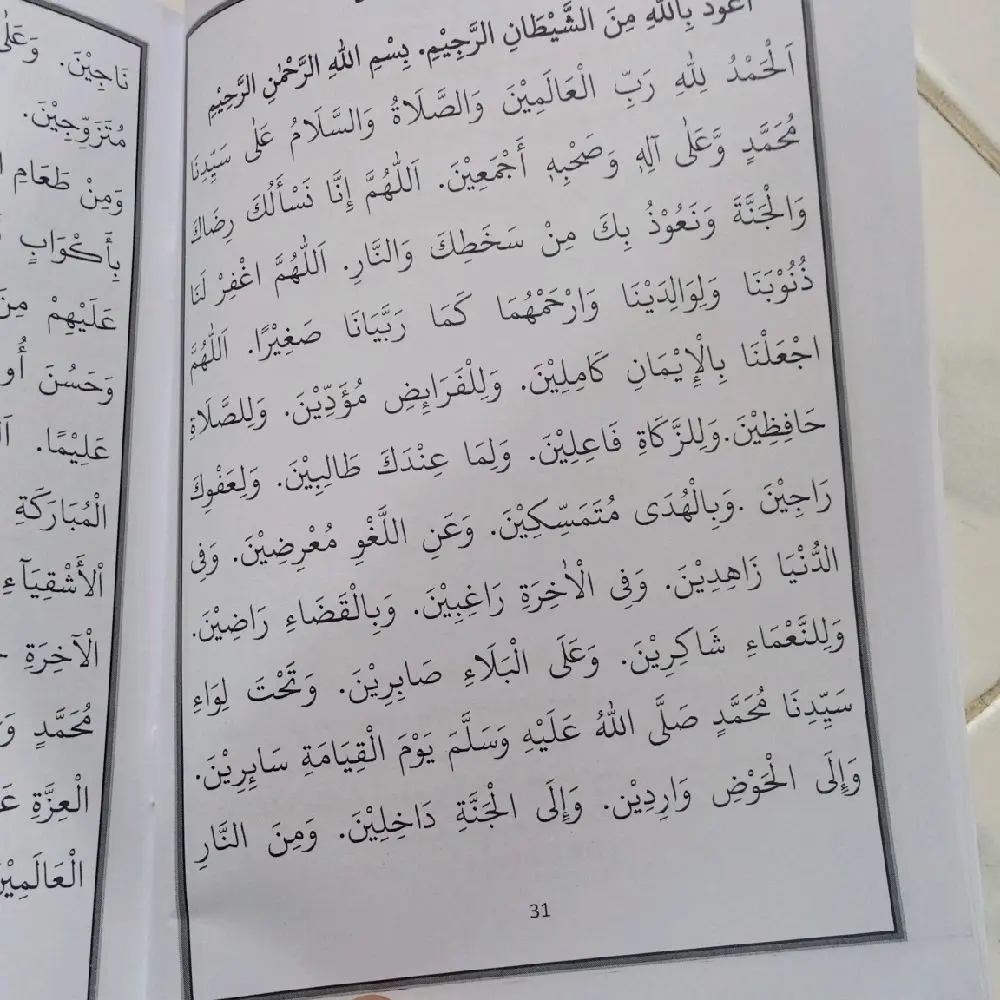 أَعُوْذُ بِاللهِ مِنَ الشَّيْطَانِ الرَّجِيْمِ. بِسْمِ اللهِ الرَّحْمٰنِ الرَّحِيْمِ
اَلْحَمْدُ لِلهِ رَبِّ الْعَالَمِيْنَ وَالصَّلَاةُ وَالسَّلَامُ عَلٰى سَيِّدِنَا
مُحَمَّدٍ وَّعَلٰى آلِهٖ وَصَحْبِهٖ أَجْمَعِيْنَ. اَللّٰهُمَّ إِنَّا نَسْأَلُكَ رِضَاكَ
وَالْجَنَّةَ وَنَعُوْذُ بِكَ مِنْ سَخَطِكَ وَالنَّارِ. اَللّٰهُمَّ اغْفِرْ لَنَا
ذُنُوْبَنَا وَلِوَالِدَيْنَا وَارْحَمْهُمَا كَمَا رَبَّيَانَا صَغِيْرًا. اَللّٰهُمَّ
اجْعَلْنَا بِالْإِيْمَانِ كَامِلِيْنَ. وَلِلْفَرَايِضِ مُؤَدِّيْنَ. وَلِلصَّلَاةِ
حَافِظِيْنَ.وَلِلزَّكَاةِ فَاعِلِيْنَ. وَلِمَا عِنْدَكَ طَالِبِيْنَ. وَلِعَفْوِكَ
رَاجِيْنَ .وَبِالْهُدَى مُتَمَسِّكِيْنَ. وَعَنِ اللَّغْوِ مُعْرِضِيْنَ. وَفِي
الدُّنْيَا زَاهِدِيْنَ. وَفِي الْاٰخِرَةِ رَاغِبِيْنَ. وَبِالْقَضَاءِ رَاضِيْنَ.
وَلِلنَّعْمَاءِ شَاكِرِيْنَ. وَعَلَى الْبَلَاءِ صَابِرِيْنَ. وَتَحْتَ لِوَاءِ
سَيِّدِنَا مُحَمَّدٍ صَلَّى اللهُ عَلَيْهِ وَسَلَّمَ يَوْمَ الْقِيَامَةِ سَايِرِيْنَ.
وَإِلَى الْحَوْضِ وَارِدِيْن. وَإِلَى الْجَنَّةِ دَاخِلِيْنَ. وَمِنَ النَّارِ
31
وَعَلَى
نَاجِيْنَ.
مُتَزَوِّجِيْنَ.
وَمِنْ طَعَامِ
بِأَكْوَابٍ
عَلَيْهِمْ مِنَ
وَحَسُنَ
عَلِيْمًا.
الْمُبَارَكَةِ
الْأَشْقِيَآءِ
الْآخِرَةِ
مُحَمَّدٍ
الْعِزَّةِ
الْعَالَمِيْنَ